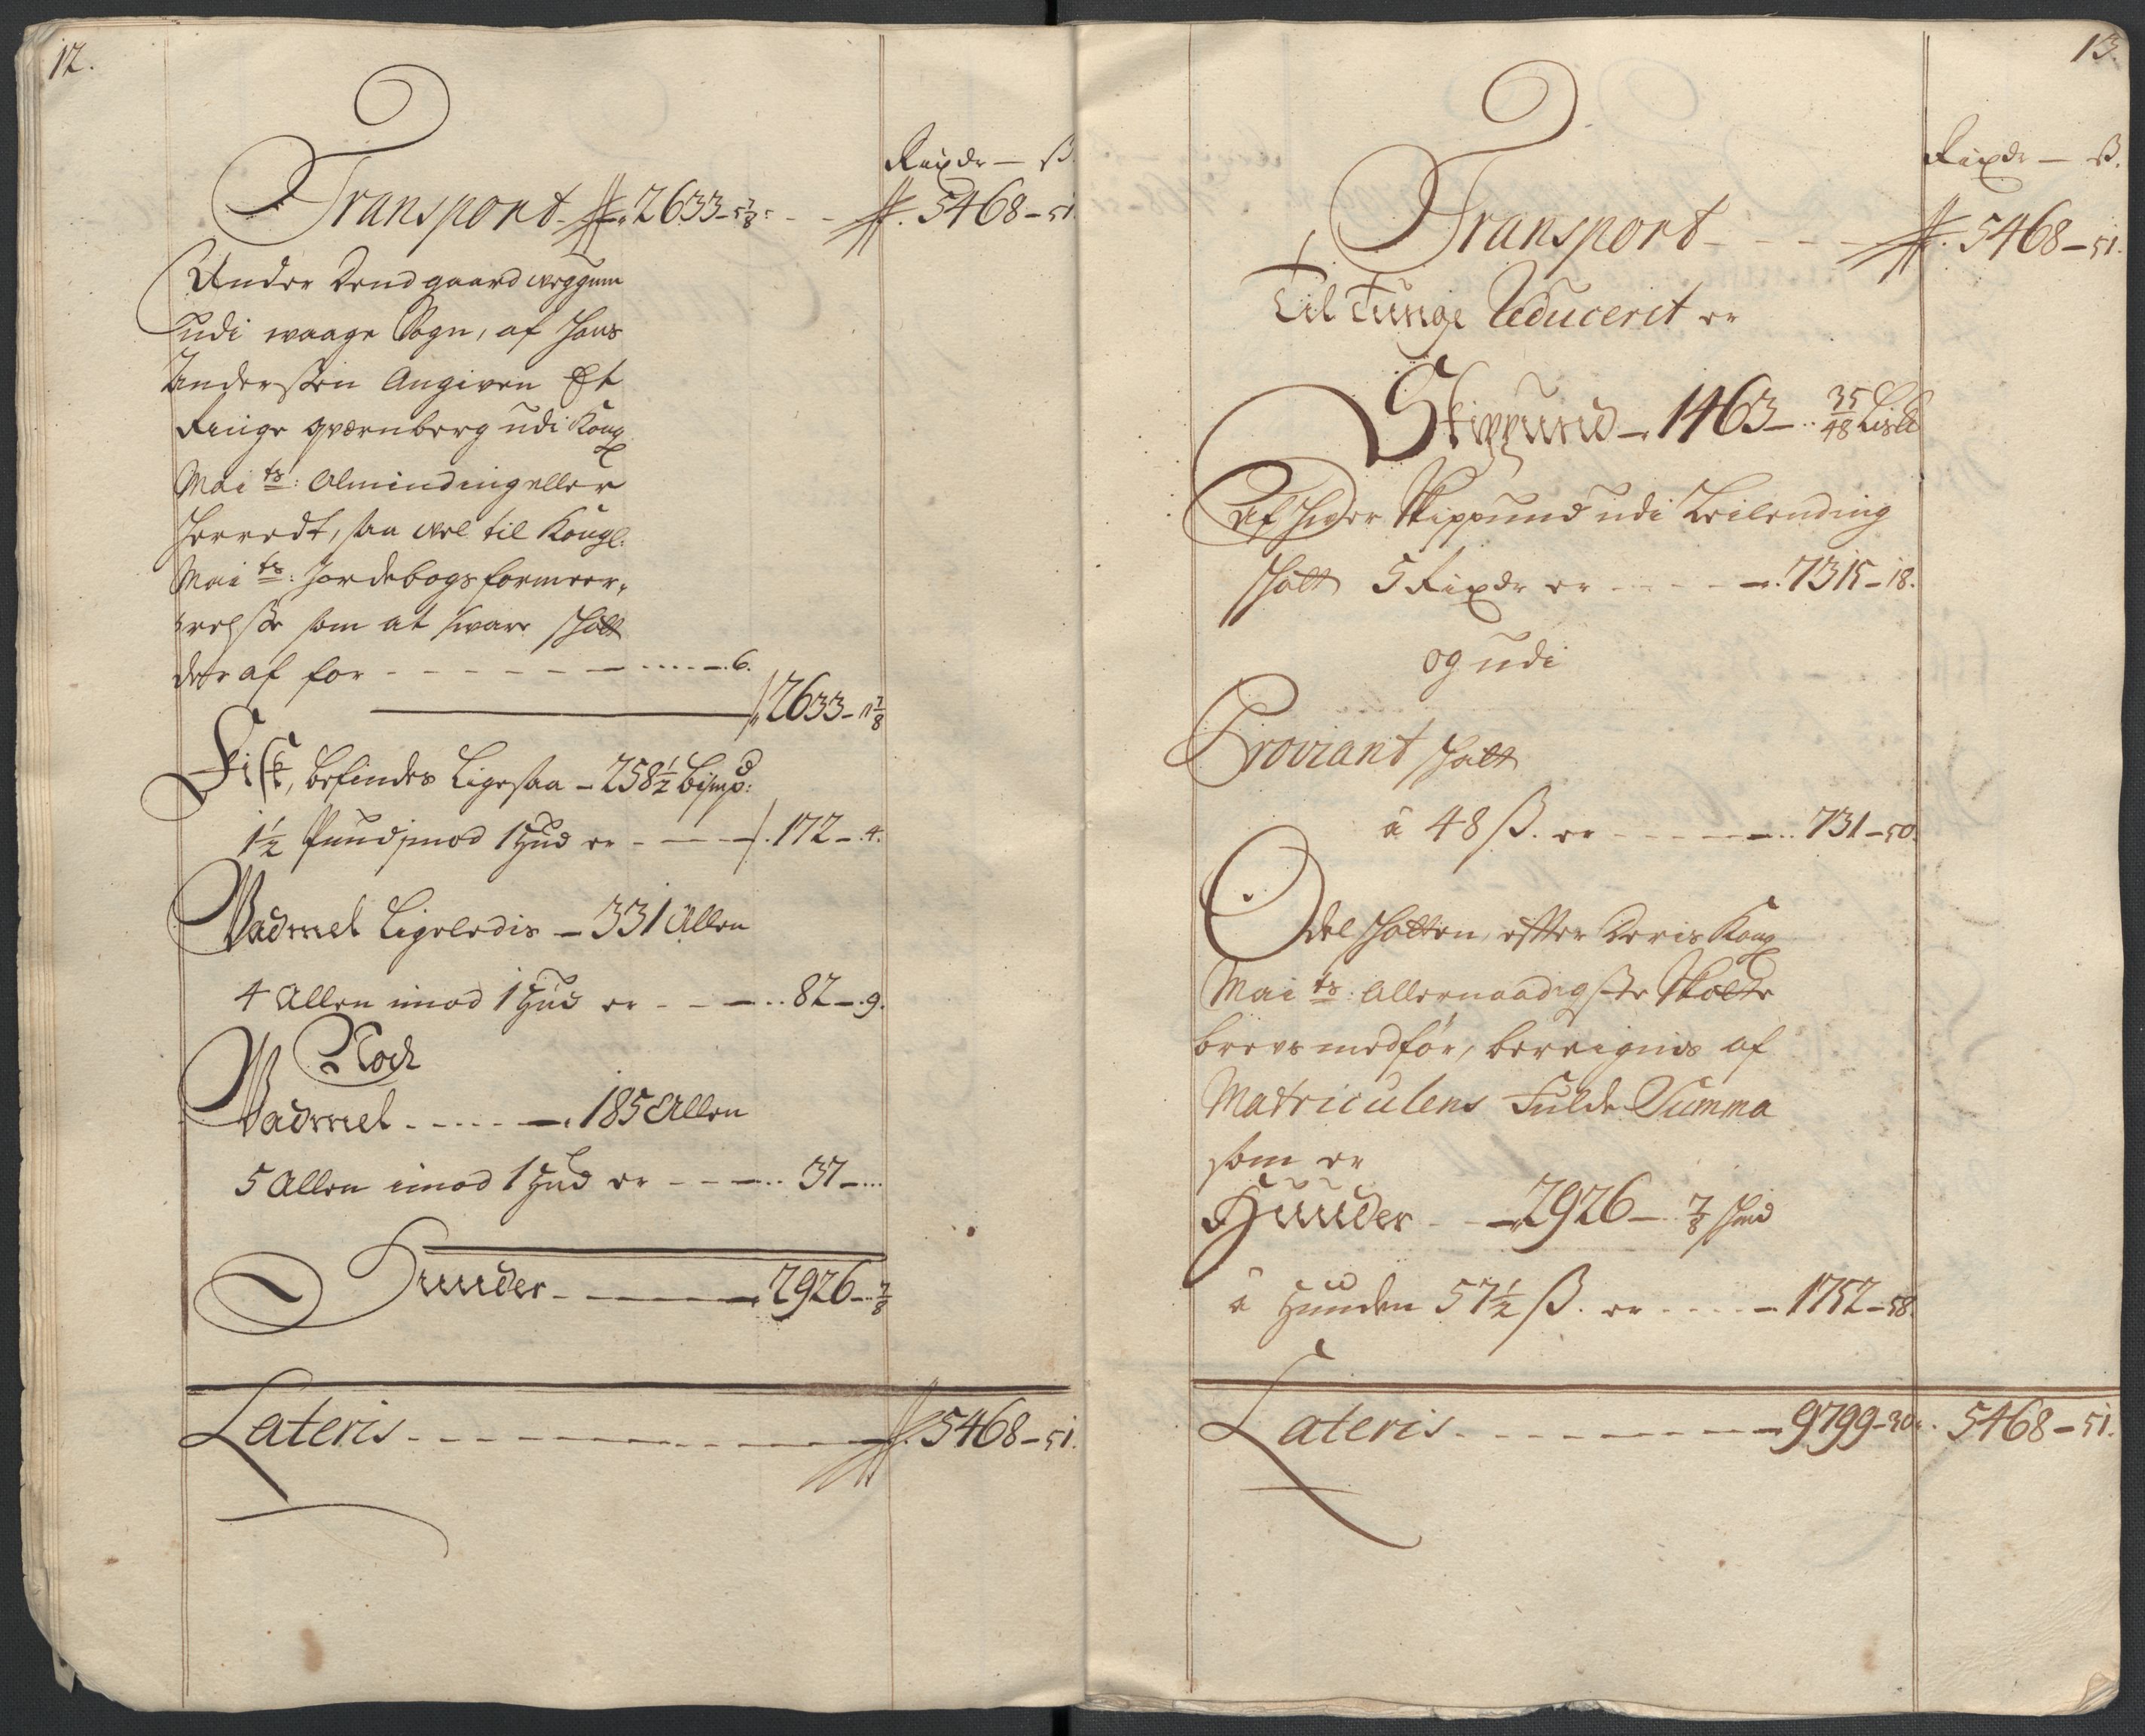 12.
Rixdr — ß.
Transport 2633 - 5⅞ - - 5468 - 51.
Under Dend gaard Weggum
udi waage Sogn, af Hans
Anderssen Angiven Et
Ringe qværnberg udi Kong
Mai ts: Alminding eller
Herredt, saa vel til Kongl:
Mai ts: Jordebogs formeer,
relsse som at svare schatt
der af for - - - - - - 6.
2633 - 11⅞
Fisk, befindes Ligesaa - 258½ bismpd:
1½ Pund imod 1 Hud er - - - 172 - 4.
Wadmel Ligeledis - 331 Allen
4 Allen imod 1 Hud er - - - 82 - 9.
Noch
Wadmel - - - - - 185 Allen
5 Allen imod 1 Hud er - - - 37 - ...
Huuder - - - - 2926 - ⅞
Lateris - - - - - - - - 5468 - 51.
13.
Rixdr — ß.
Transport - - - - 5468 - 51.
Til Tunge Reducerit er
Skippund - 1463 - 35/48 Lispd
Af hver Skippund udi Leilending
schatt 5 Rixdr er - - - - 7315 - 18.
og udi
Proviant schatt
à 48 ß. er - - - - - 731 - 50.
Odel schatten, efter Deris Kong
Mai ts: Allernaadigste Skatte
brevs medför, bereignis af
Matriculens Fulde Summa
som er
Huuder - - 2926 - ⅞ hud
à Huuden 57½ ß. er - - - - 1752 - 58.
Lateris - - - - - - - 9799 - 30. 5468 - 51.